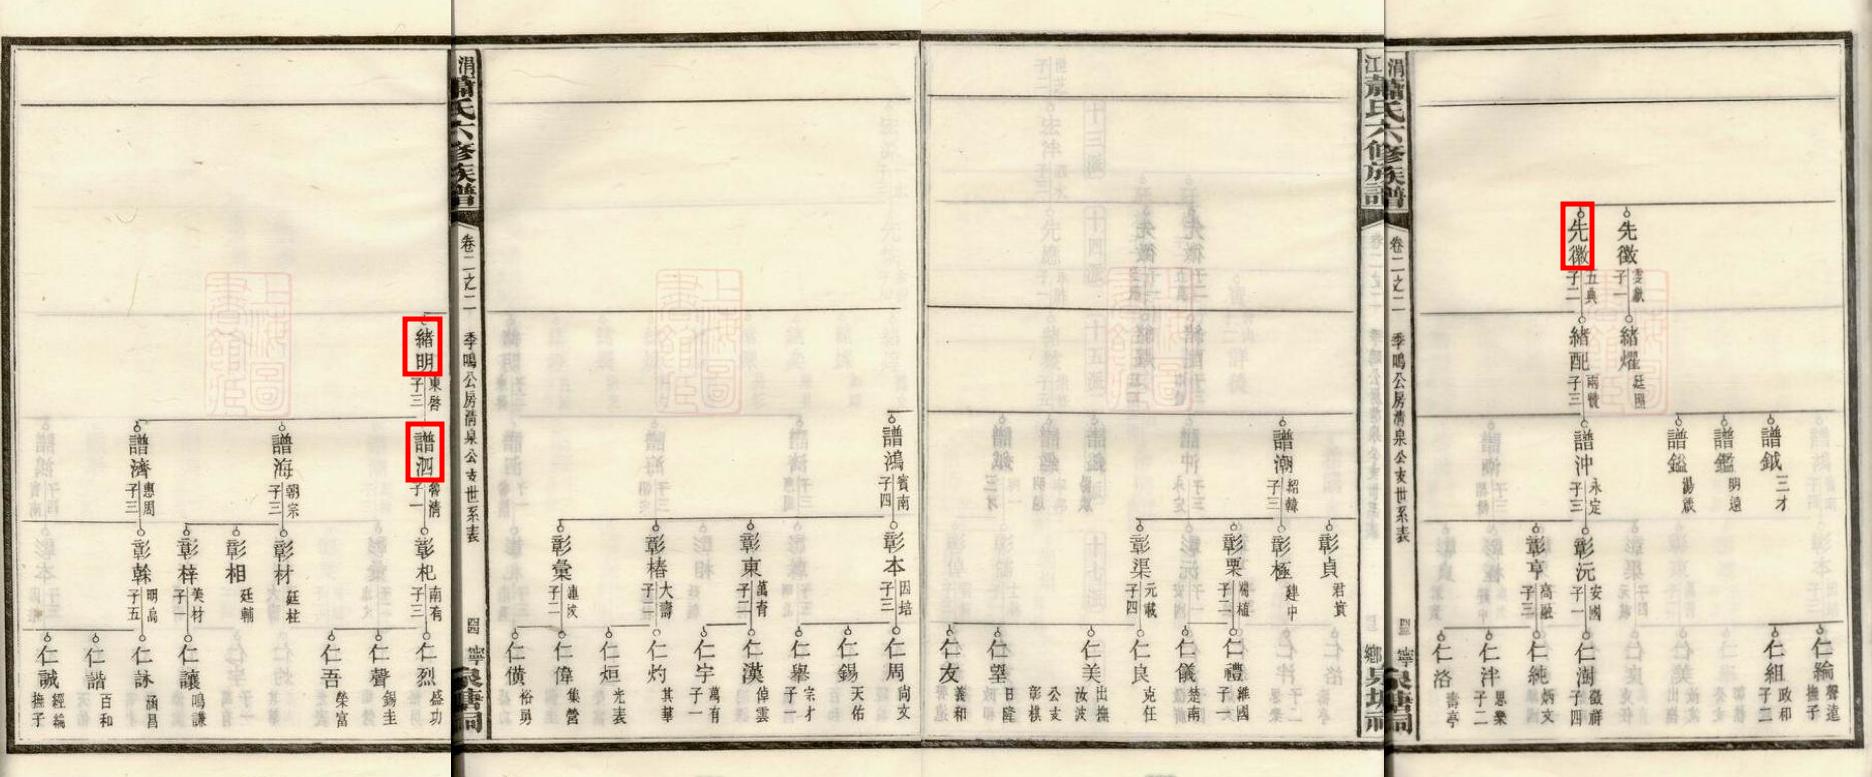 先徵 雯獻 子一
先徽 五典 子二
緒燿 廷照
緒配 兩贊 子三
譜鉞 三才
譜鑑 明遠
譜鎰 湯箴
譜沖 永定 子三
彰沅 安國 子一
彰亨 高融 子三
仁綸 聲遠 撫子
仁組 政和 子二
仁澍 徵祥 子四
仁純 炳文
仁泮 思樂 子二
仁洛 壽亭
涓江蕭氏六修族譜
卷二之二
季鳴公房清泉公支世系表
四
寧鄉泉塘祠
譜潮 紹韓 子三
彰貞 君實
彰極 建中
彰栗 子二
彰渠 元載 子四
仁禮 維國 子一
仁儀 楚南
仁良 克任
仁美 出撫 汝波 公支 彰棋
仁望 日隆
仁友 義和
譜鴻 賓南 子四
彰本 因培 子三
彰東 萬青 子二
彰椿 大壽 子二
彰彙 連汝 子二
仁周 尚文
仁錫 天佑
仁舉 宗才 子一
仁漢 倬雲
仁宇 萬有 子一
仁灼 其華
仁烜 光表
仁偉 集營
仁僙 裕勇
涓江蕭氏六修族譜
卷二之二
季鳴公房清泉公支世系表
四
寧鄉泉塘祠
緒明 東啓 子三
譜泗 魯清 子一
譜海 朝宗 子三
譜濟 惠周 子三
彰杞 南有 子三
彰材 廷柱
彰相 廷輔
彰梓 美材 子一
彰榦 明禹 子五
仁烈 盛功
仁聲 錫圭
仁吾 榮富
仁讓 鳴謙
仁詠 涵昌
仁諧 百和
仁誠 經綸 撫子